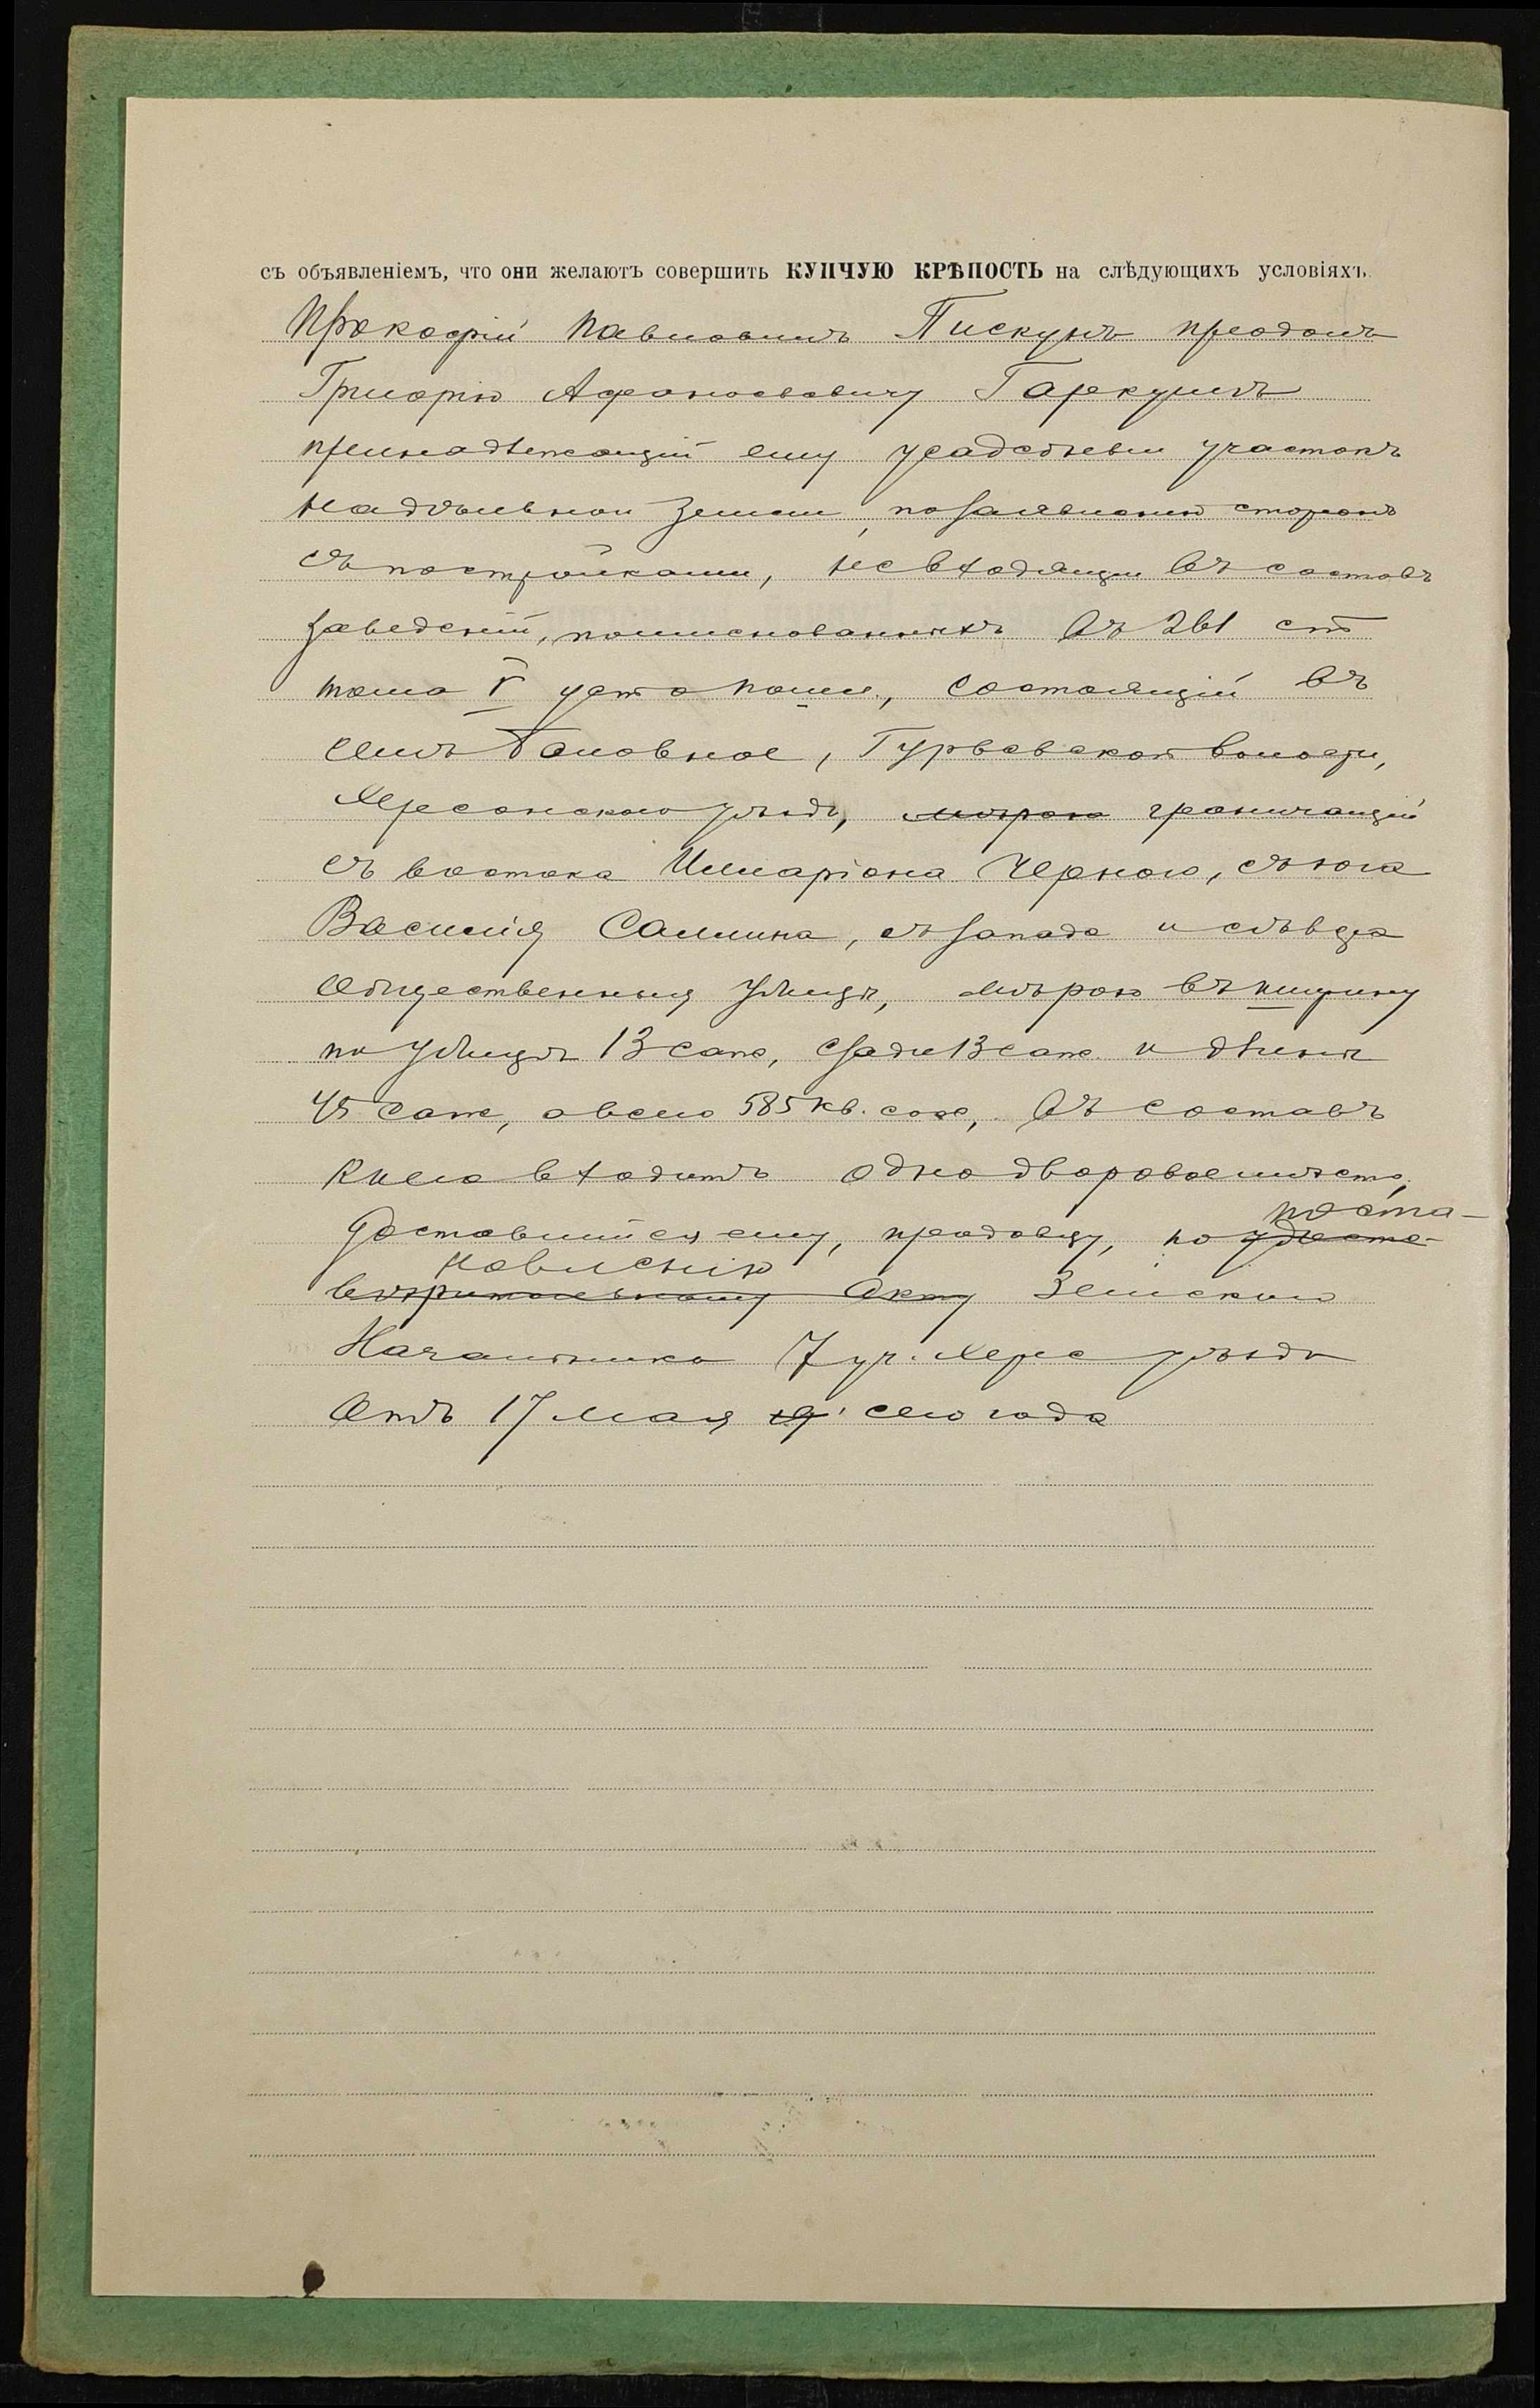 съ объявленіемъ, что они желаютъ совершить КУПЧУЮ КРѢПОСТЬ на слѣдующихъ условіяхъ.
Прокофій Павловичъ Пискунъ продалъ
Григорію Афанасьевичу Гаркушѣ
принадлежащій ему усадебный участокъ
надѣльной земли, по заявленію сторонъ
съ постройками, не входящій въ составъ
заведеній, поименованныхъ въ 261 ст
тома V уст о пошл., состоящій въ
селѣ Баловное, Гурьевской волости,
Херсонскаго уѣзда, мѣрою граничащій
съ востока Илларіона Чернаго, съ юга
Василія Саллина, съ запада и сѣвера
общественныя улицы, мѣрою въ ширину
по улицѣ 13 саж, сзади 13 саж. и длины
45 саж, а всего 585 кв. саж, въ составъ
коего входитъ одно дворовое мѣсто,
доставшійся ему, продавцу, по удосто-
поста-
новленію
вѣрительному акту Земскаго
Начальника 7 уч. Херс уѣзда
отъ 17 мая 19 сего года